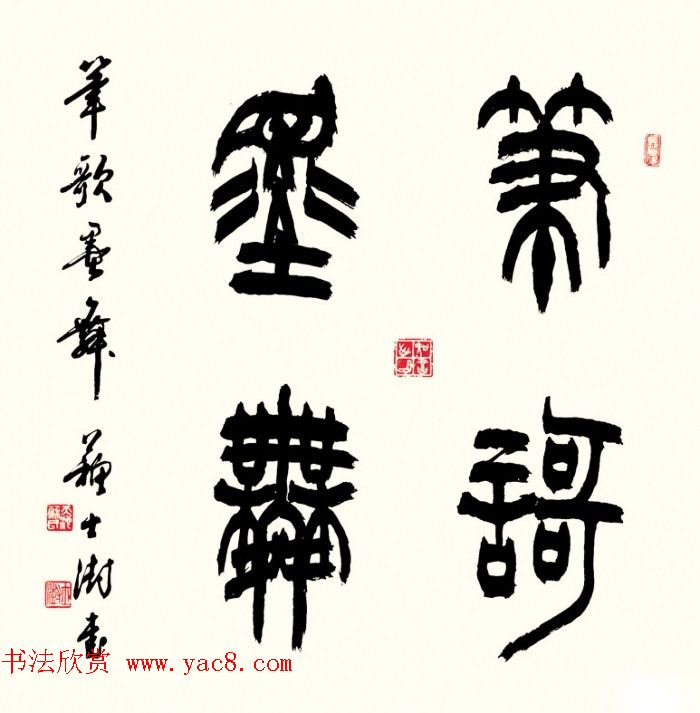 筆謌
墨舞
筆歌墨舞 蘇士澍書
书法欣赏 www.yac8.com